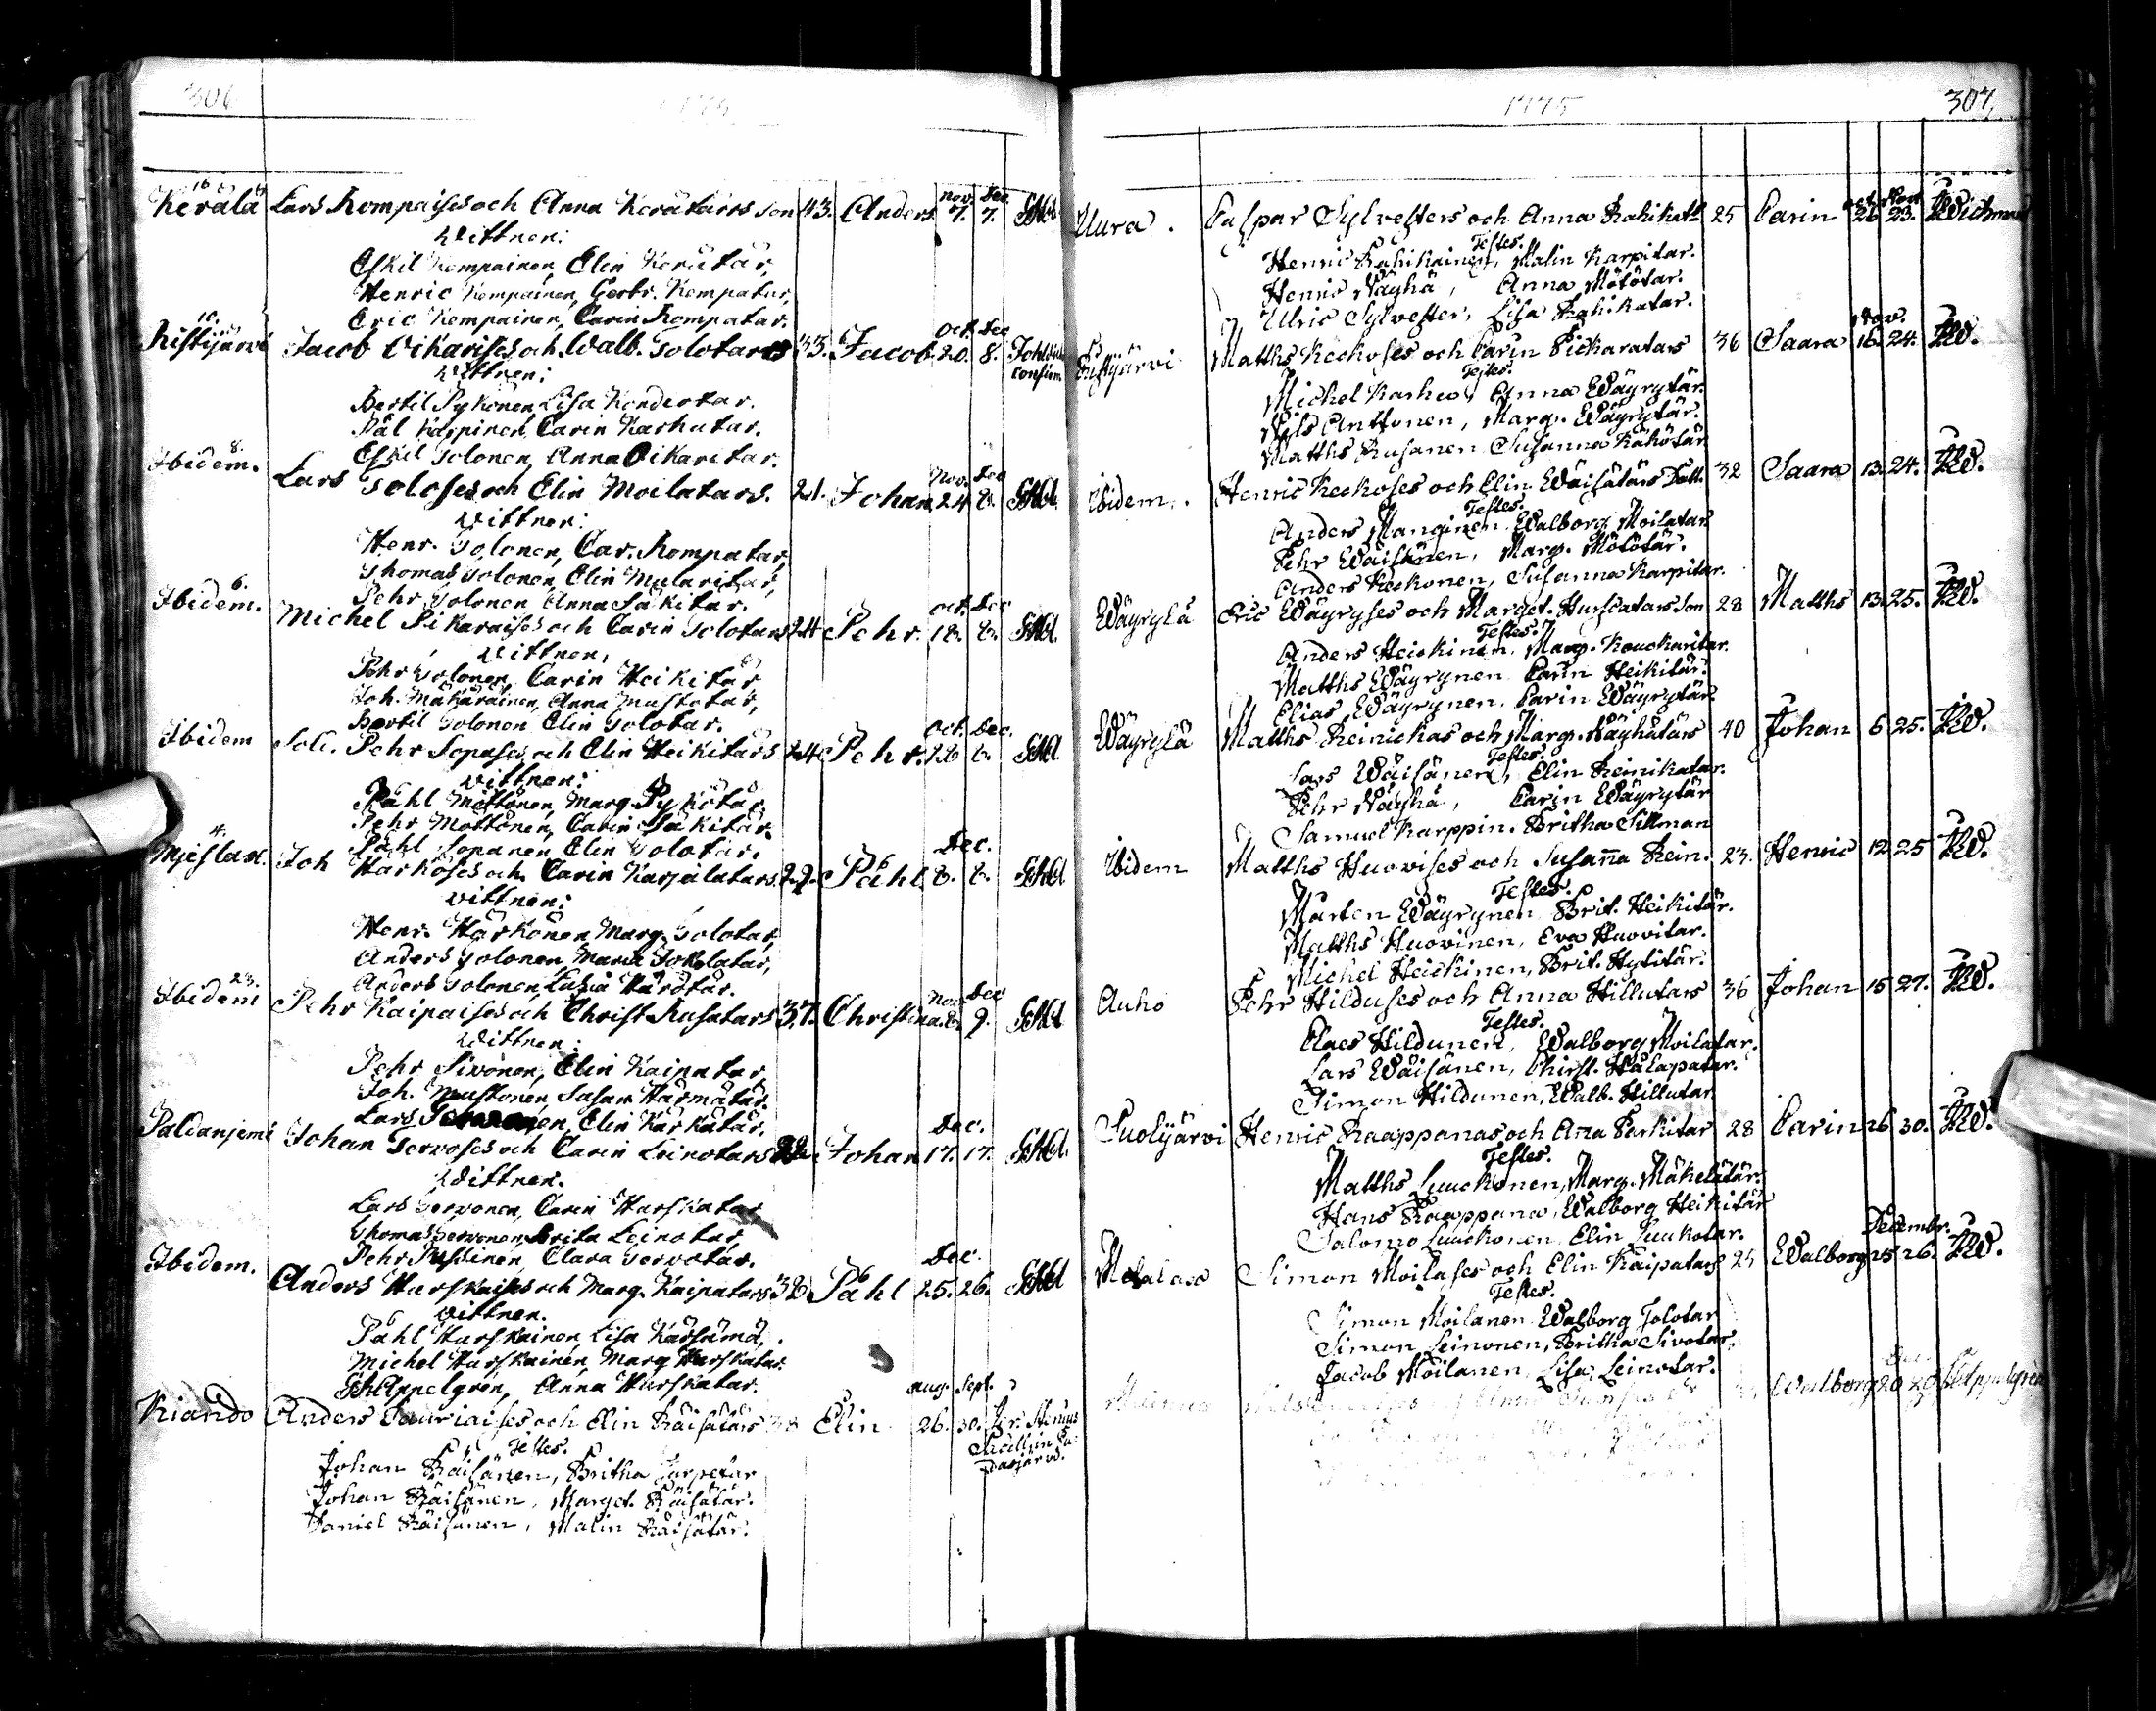 306
1775
Kerälä 16 Lars Kompaises och Anna Kerätärs son 43. Anders nov. 7. Dec. 7.
Wittnen:
Eskil Kempainen, Elin Kerätär,
Henric Kempainen, Gertr. Kempatar,
Eric Kempainen, Carin Kompatar.
Ristijärvi 10. Jacob Oikarises och Walb. Tolotars 33. Jacob oct. 20. Dec 8.
Wittnen:
Bertil Pykönen, Lisa Kondeotar.
Pål Karpinen, Carin Karhutar.
Eskil Tolonen, Anna Oikaritar.
Ibidem. 8. Lars Toloses och Elin Moilatars. 21. Johan Nov. 24. Dec 8.
Wittnen:
Henr. Tolonen, Car. Kompatar,
Thomas Tolonen, Elin Mularitar,
Pehr Tolonen, Anna Säkitär.
Ibidem. 6. Michel Pikaraises och Carin Tolotars 24 Pehr. oct. 18. Dec 8.
Wittnen,
Pehr Tolonen, Carin Heikitär
Joh. Mäkäräinen, Anna Mustotar,
Bertil Tolonen, Elin Tolotar.
Ibidem Sold. Pehr Sopases och Elin Heikitärs 24 Pehr. Oct. 28 Dec. 8.
Wittnen:
Påhl Möttönen, Marg. Pykötär,
Pehr Möttönen, Carin Säkitär,
Påhl Sopanen, Elin Tolotar.
Mieslax. 4. Joh Härköses och Carin Karjalatars 22. Påhl Dec. 8. 8.
Wittnen:
Henr. Härkönen, Marg. Tolotar,
Anders Tolonen, Maria Tokolatar,
Anders Tolonen, Lusia Härötär.
Ibidem 23. Pehr Kaipaises och Christ. Rusatars 37. Christina Nov. 8. Dec 9.
Wittnen:
Pehr Sivonen, Elin Kaipatar,
Joh. Mustonen, Susan Härmätär,
Lars Elin Kärkätär.
Paldanjemi Johan Tervoses och Carin Leinotars 22 Johan Dec. 17. 17.
Wittnen.
Lars Tervonen, Carin Hurskatar
Thomas Tervonen, Brita Leinotar
Pehr Mussinen, Clara Tervotar.
Ibidem. Anders Hurskaises och Marg. Kaipatars 32 Påhl Dec. 25. 26.
Wittnen.
Påhl Hurskainen, Lisa Kärsämä,
Michel Hurskainen, Marg Hurskatar.
Appelgren, Anna Hurskatar.
Kiando Anders Sauriaises och Elin Räisätärs 38 Elin aug. 26. Sept. 30.
Testes.
Johan Räisänen, Britha
Johan Räisänen, Marget. Räisätär.
Daniel Räisänen, Malin Räisätär.
1775
307
Uura. Caspar Sylvesters och Anna Rahikat. 25 Carin oct. 26 Nov 23. Wichman
Testes.
Henric Rahikainen, Malin Karpitar.
Henric Näyhä, Anna Mötötär.
Ulric Sylvester, Lisa Rahikatar.
Ristijärvi Matths Keckoses och Carin Pickaratars 36 Saara Nov. 16. 24.
Testes.
Michel Karhu, Anna Wäyrytär.
Nils Anttonen, Marg. Wäyrytär.
Matths Rusanen, Susanna Kähötär
Ibidem. Henric Keckoses och Elin Wäisätärs Dott. 32 Saara 13. 24.
Testes.
Anders Manginen, Walborg Moilatar.
Pehr Wäisänen, Marg. Mötötär.
Anders Keckonen, Susanna Karpitar.
Wäyrylä Eric Wäyryses och Marget. Hurscatars son 28 Matths 13. 25.
Testes.
Anders Heickinen, Marg. Kouckaritar.
Matths Wäyrynen, Carin Heikitär.
Elias Wäyrynen, Carin Wäyrytär.
Wäyrylä Matths Reinickas och Marg. Näyhätärs 40 Johan 6 25.
Testes.
Lars Wäisänen, Elin Reinikatar.
Pehr Näyhä, Carin Wäyrytär
Samuel Karppin. Britha Sillman
Ibidem Matths Huovises och Susanna Rein. 23. Henric 12 25
Testes.
Mårten Wäyrynen, Brit. Heikitär.
Matths Huovinen, Eva Huovitar.
Michel Heickinen, Brit. Hytitär.
Auho Pehr Hilduses och Anna Hillutars 36 Johan 15 27.
Testes.
Claes Hildunen, Walborg Moilatar.
Lars Wäisänen, Christ. Hälapatar.
Simon Hildunen, Walb. Hillutar.
Puolijärvi Henric Raappanas och Ana Parkitar 28 Carin 26 30.
Testes.
Matths Luuckonen, Marg. Mäkelätär.
Hans Raappana, Walborg Heikitär
Salomo Luuckonen, Elin Luukotar.
Simon Moilases och Elin Kaipatars 25 Walborg Decembr. 25 26.
Testes.
Simon Moilanen, Walborg Tolotar
Simon Leinonen, Britha Sivotar.
Jacob Moilanen, Lisa Leinotar.
Walborg 20 26